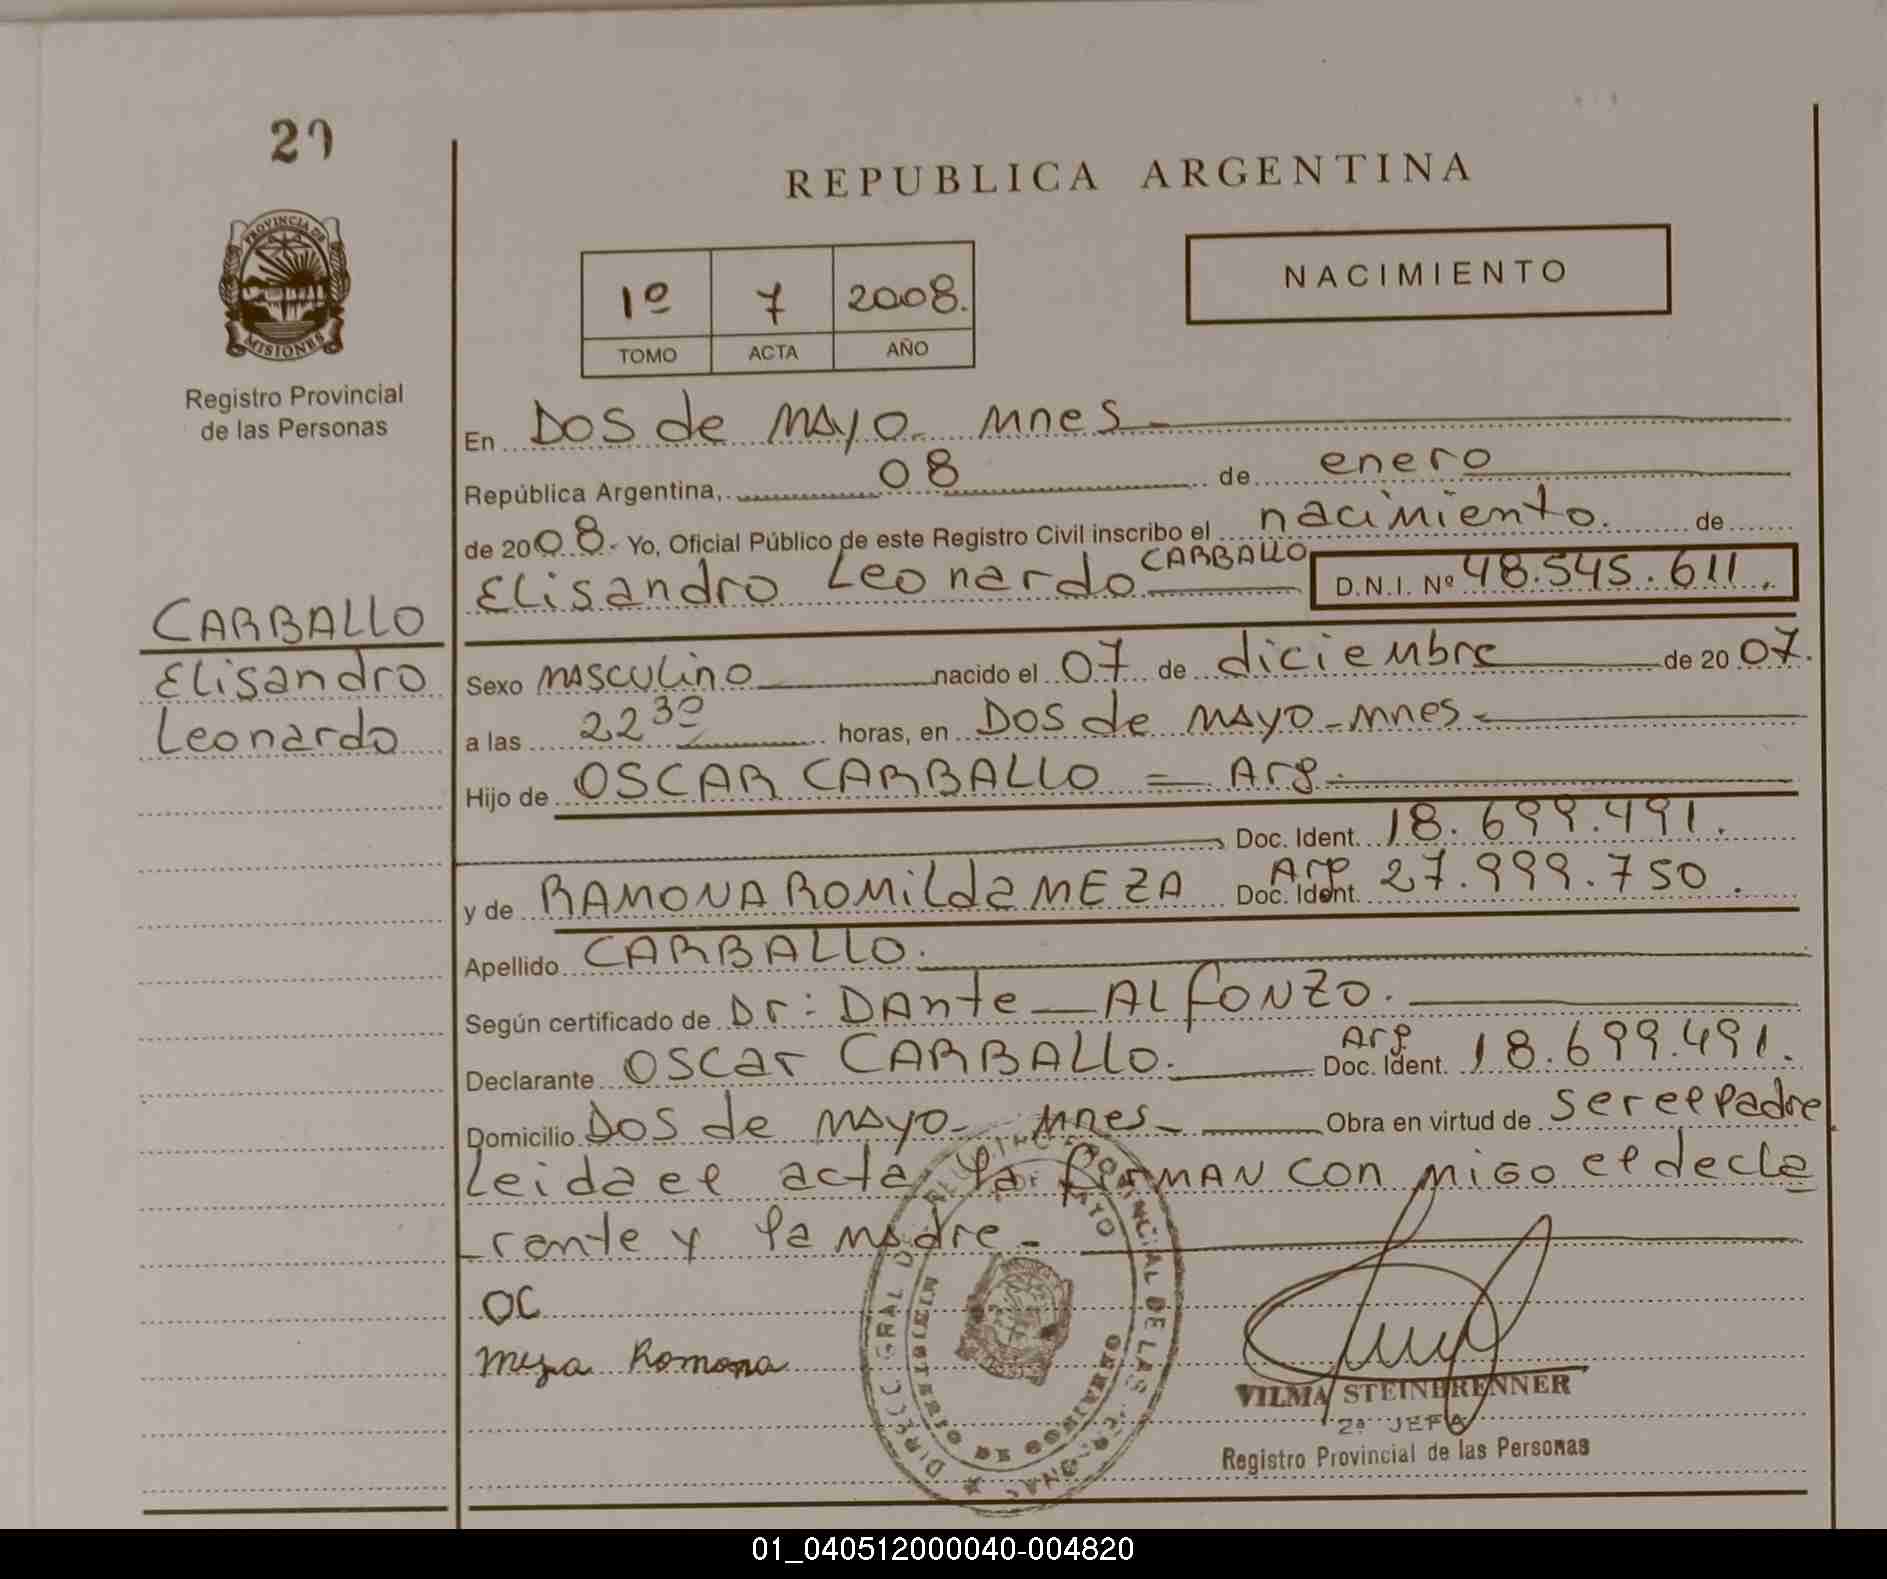 29
PROVINCIA DE
MISIONES
Registro Provincial
de las Personas
CARBALLO
Elisandro
Leonardo
REPUBLICA ARGENTINA
1º 7 2008.
TOMO ACTA AÑO
NACIMIENTO
En DOS de MAYO. Mnes
República Argentina, 08 de enero
de 2008.- Yo, Oficial Público de este Registro Civil inscribo el nacimiento. de
Elisandro Leonardo CARBALLO D.N.I. Nº 48.545.611.
Sexo MASCULINO nacido el 07 de diciembre de 2007.
a las 22 30 horas, en DOS de MAYO - Mnes -
Hijo de OSCAR CARBALLO = Arg.
Doc. Ident. 18.699.491.
y de RAMONA ROMILda MEZA Arg Doc. Ident. 27.999.750.
Apellido CARBALLO.
Según certificado de Dr: DAnte - ALfONZO.
Declarante OSCAr CARBALLO. Arg. Doc. Ident. 18.699.491.
Domicilio DOS de MAYO - Mnes - Obra en virtud de ser el padre
Leida el acta la firMAN con MIGO el decla
rante y la madre -
OC
Meza Romona
VILMA STEINBRENNER
2ª JEFA
Registro Provincial de las Personas
01_040512000040-004820